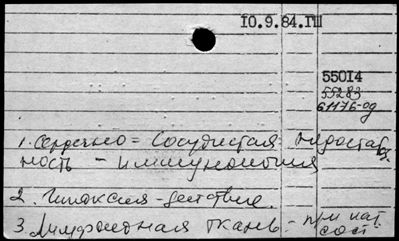 10.9.84.ГШ
55014
55283
61176-од
1. Сердечно = сосудистая недостаточ
ность - иммунология
2. Гипоксия - действие.
3. Лимфоидная ткань - при пат.
сост